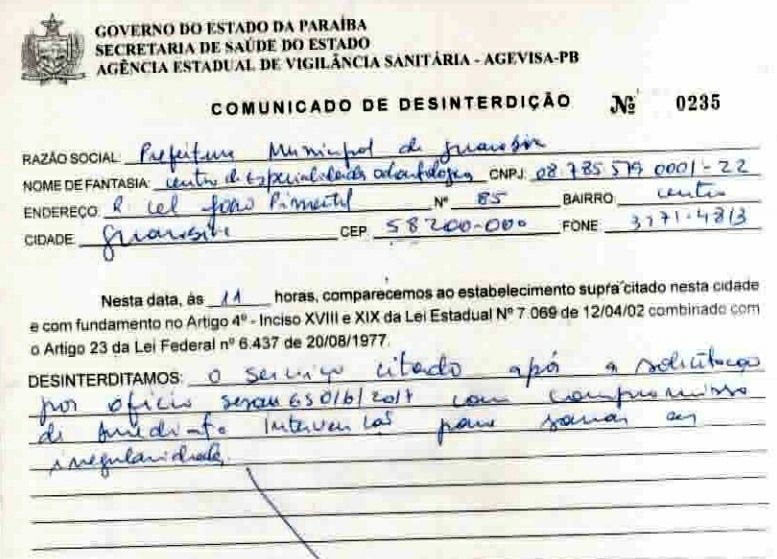 GOVERNO DO ESTADO DA PARAÍBA
SECRETARIA DE SAÚDE DO ESTADO
AGÊNCIA ESTADUAL DE VIGILÂNCIA SANITÁRIA - AGEVISA-PB
COMUNICADO DE DESINTERDIÇÃO Nº 0235
RAZÃO SOCIAL: Prefeitura Municipal de Guarabira
NOME DE FANTASIA: centro de Especialidades odontológica CNPJ 08.785.579 0001-22
ENDEREÇO: R. cel João Pimentel Nº 85 BAIRRO centro
CIDADE Guarabira CEP 58200-000 FONE: 3271-4813
Nesta data, às 11 horas, comparecemos ao estabelecimento supra citado nesta cidade
e com fundamento no Artigo 4º - Inciso XVIII e XIX da Lei Estadual Nº 7.069 de 12/04/02 combinado com
o Artigo 23 da Lei Federal nº 6.437 de 20/08/1977.
DESINTERDITAMOS: o serviço citado após a solicitaçao
por ofício 2017 com compromisso
de imediato intervençao para sanar as
irregularidades.